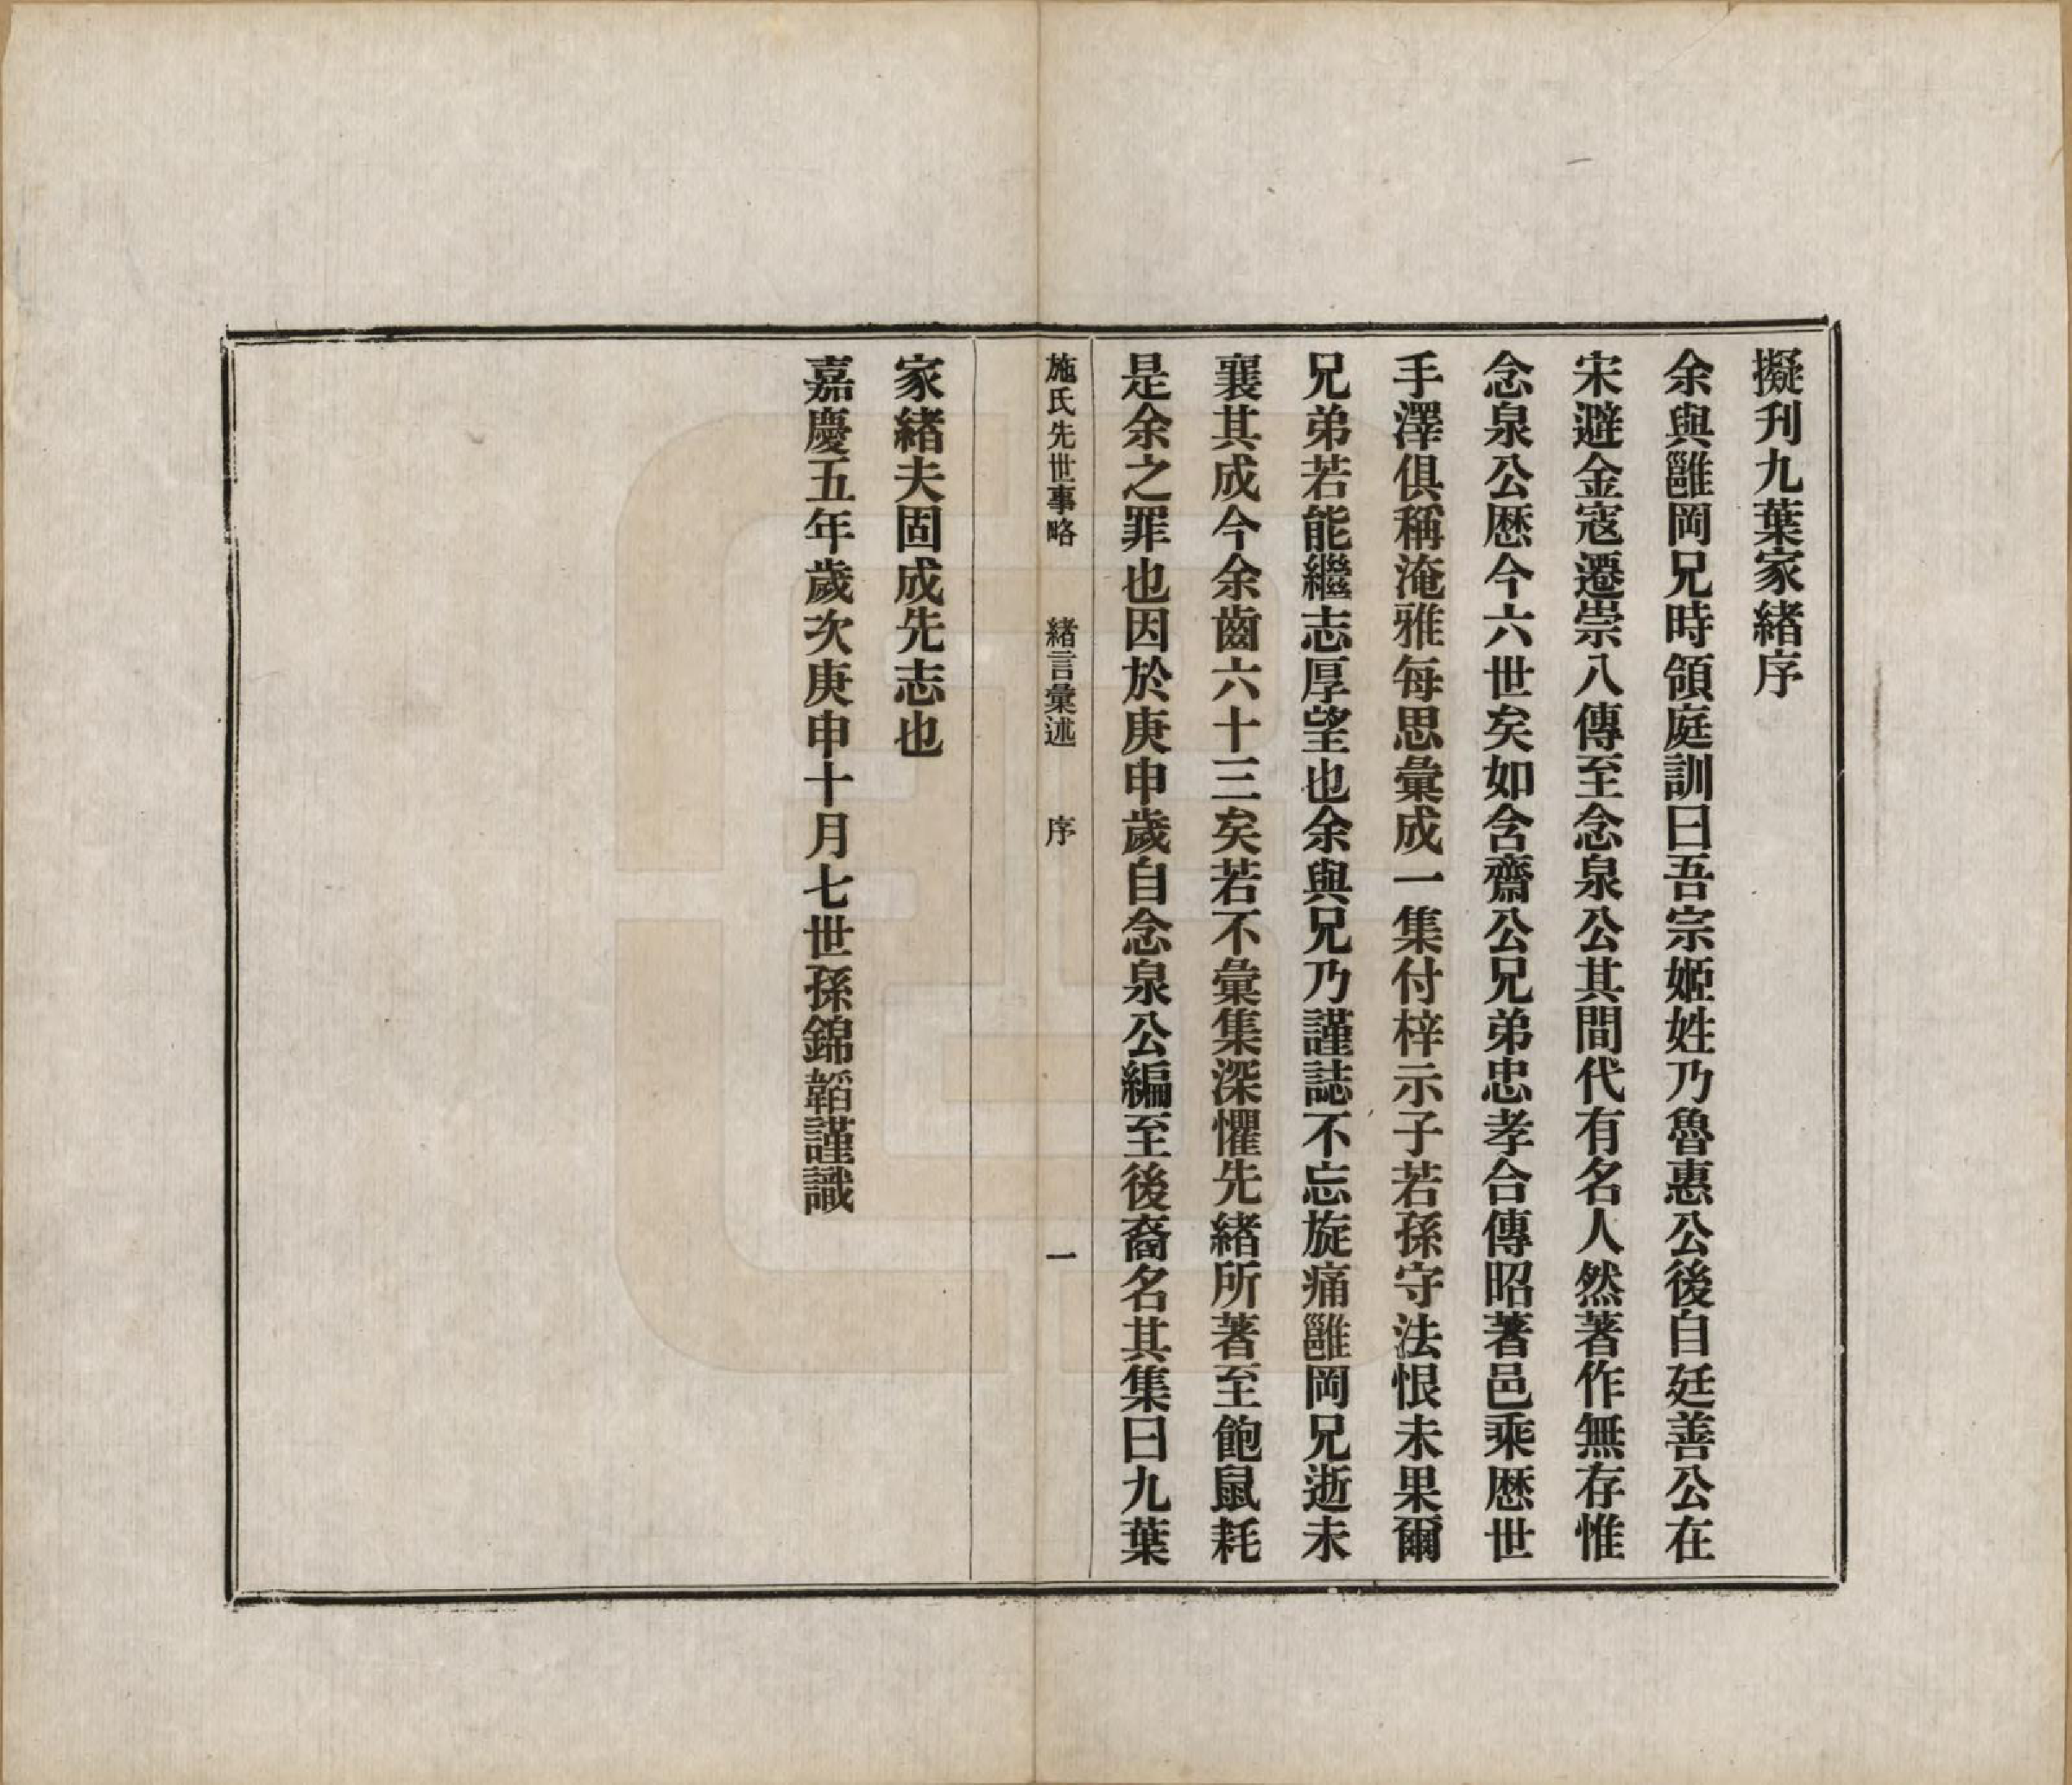 擬刋九葉家緒序
余與雝岡兄時領庭訓曰吾宗姬姓乃魯惠公後自廷善公在
宋避金寇遷崇八傳至念泉公其間代有名人然著作無存惟
念泉公厯今六世矣如含齋公兄弟忠孝合傳昭著邑乘厯世
手澤俱稱淹雅每思彙成一集付梓示子若孫守法恨未果爾
兄弟若能繼志厚望也余與兄乃謹誌不忘旋痛雝岡兄逝未
襄其成今余齒六十三矣若不彙集深懼先緒所著至飽鼠耗
是余之罪也因於庚申歲自念泉公編至後裔名其集曰九葉
施氏先世事略 緒言彙述 序 一
家緒夫固成先志也
嘉慶五年歲次庚申十月七世孫錦韜謹識